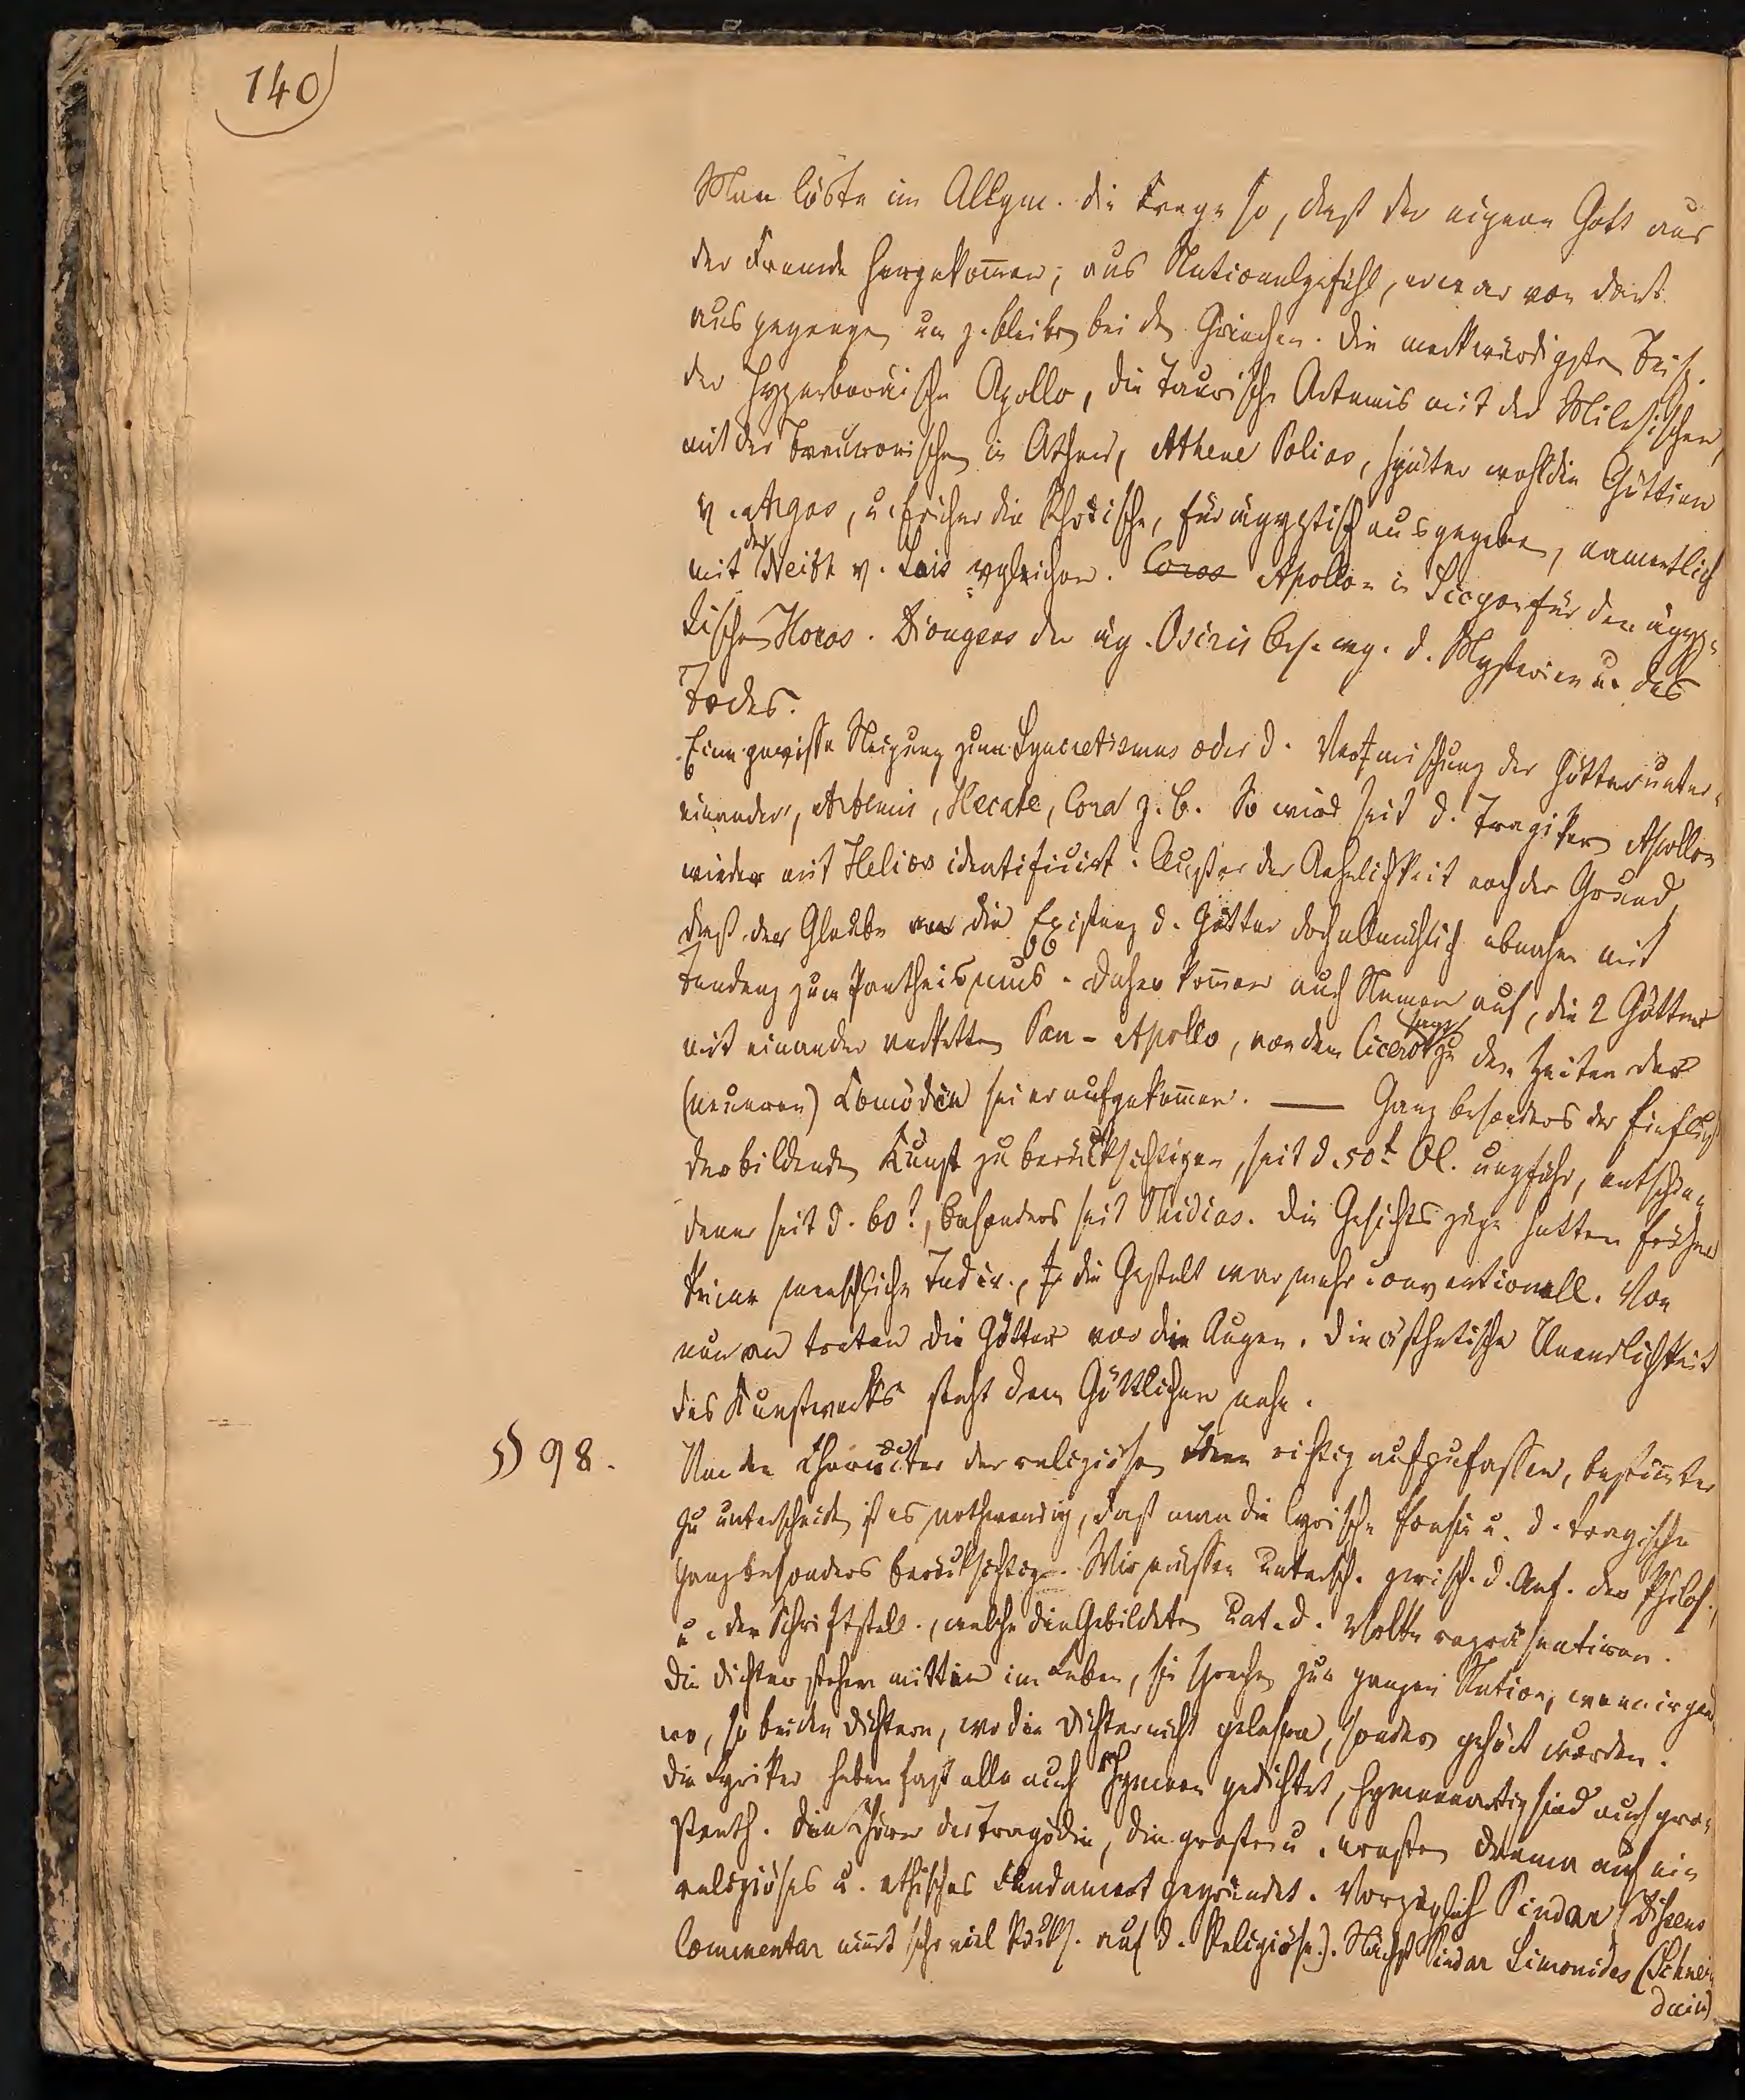 140
Man löste im Allgem. die Frage so, daß der eigene Gott aus
der Fremde hergekom̄en; aus Nationalgefühl, er war von dort
ausgegangen um z. bleiben bei den Griechen. Die merkwürdigsten Beisp.
der Hyperboräische Apollo, die Taurische Artemis mit der Milesischen,
mit der Brauronischen in Athen, Athene Polias, später wohl die Göttinn
v. Argos, u. früher die Rhodische, für ägyptisch ausgegeben, namentlich
mit der Neith v. Sais vgleichen. Coros Apollon in Sicyon für den ägyp-
tischen Horos. Dionysos der äg. Osiris bes. weg. d. Mysterien u. des
Todes.
Eine gewisse Neigung zum Syncretismus oder d. Vermischung der Götter unter-
einander, Artemis, Hecate, Cora z. B. So wird seit d. Tragikern Apollon
wieder mit Helios identificirt. Außer der Aehnlichkeit noch der Grund,
daß der Glaube an die Existenz d. Götter doch allmählich abnahm mit
Tendenz zum Pantheismus. Daher kom̄en auch Namen auf, die 2 Götter
mit einander verketten Pan-Apollo, von dem Cicero sagt zu den Zeiten der
(neueren) Comödie sei er aufgekom̄en. — Ganz besonders der Einfluß
der bildenden Kunst zu berücksichtigen, seit d. 50t Ol. ungefähr, entschie-
dener seit d. 60t, besonders seit Phidias. Die Gesichtszüge hatten früher
keine menschliche Indiv., die Gestalt war mehr conventionell. Von
nun an treten die Götter vor die Augen. Die ästhetische Unendlichkeit
des Kunstwerks steht dem Göttlichen nahe.
§ 98. Um den Character der religiösen Ideen richtig aufzufassen, bestim̄ter
zu unterscheiden ist es nothwendig, daß man die lyrische Poesie u. d. tragische
ganz besonders berücksichtige. Wir müssen untersch. zwisch. d. Ans. der Philos.,
u. den Schriftstell., welche die Gebildeten unt. d. Volke repräsentiren.
Die Dichter stehen mitten im Leben, sie sprechen zur ganzen Nation, wenn irgend
wo, so bei den Dichtern, wo die Dichter nicht gelesen, sondern gehört wurden.
Die Lyriker haben fast alle auch Hymnen gedichtet, hymnenartig sind auch
die Chöre der Tragödie, die großen u. ernsten Dramen auf ein
religiöses u. ethisches Fundament gegründet. Vorzüglich Pindar (Dissens
Commentar nim̄t sehr viel Rücks. auf d. Religiöse). Nächst Pindar Simonides (Schnei-
dewin)